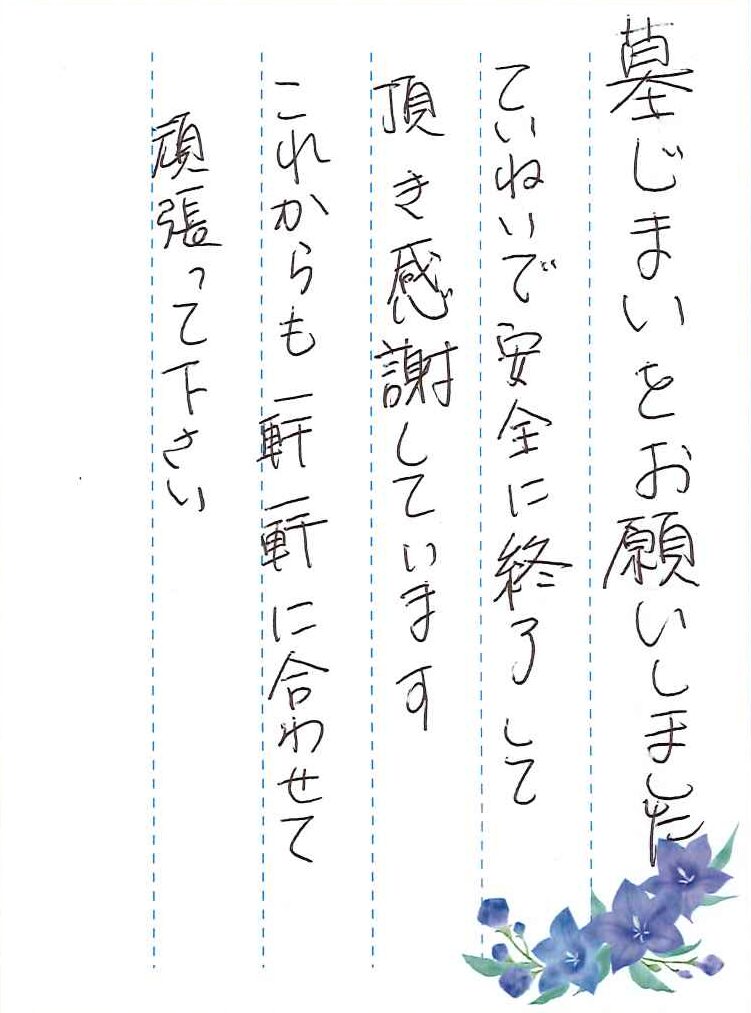 墓じまいをお願いしました
ていねいで安全に終了して
頂き感謝しています
これからも一軒一軒に合わせて
頑張って下さい